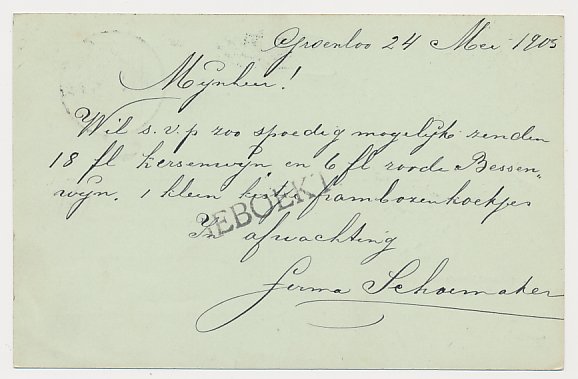 Groenloo 24 Mei 1905
Mijnheer!
Wil s.v.p. zoo spoedig mogelijk zenden
18 fl kersenwijn en 6 fl roode Bessen„
wijn. 1 klein kist frambozenkoekjes
GEBOEKT
In afwachting
firma Schoemaker